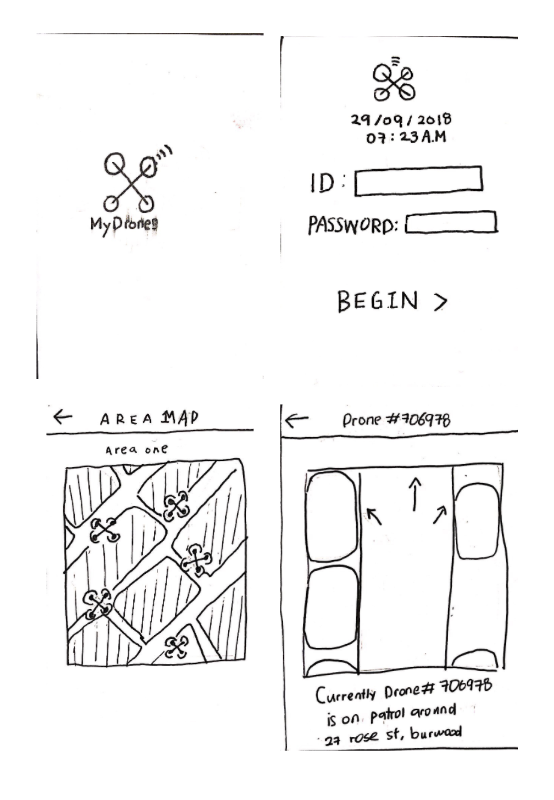 MyDrones
29/09/2018
07:23 A.M
ID:
PASSWORD:
BEGIN >
← AREA MAP
Area one
← Drone #706978
Currently Drone# 706978
is on patrol around
27 rose st, burwood